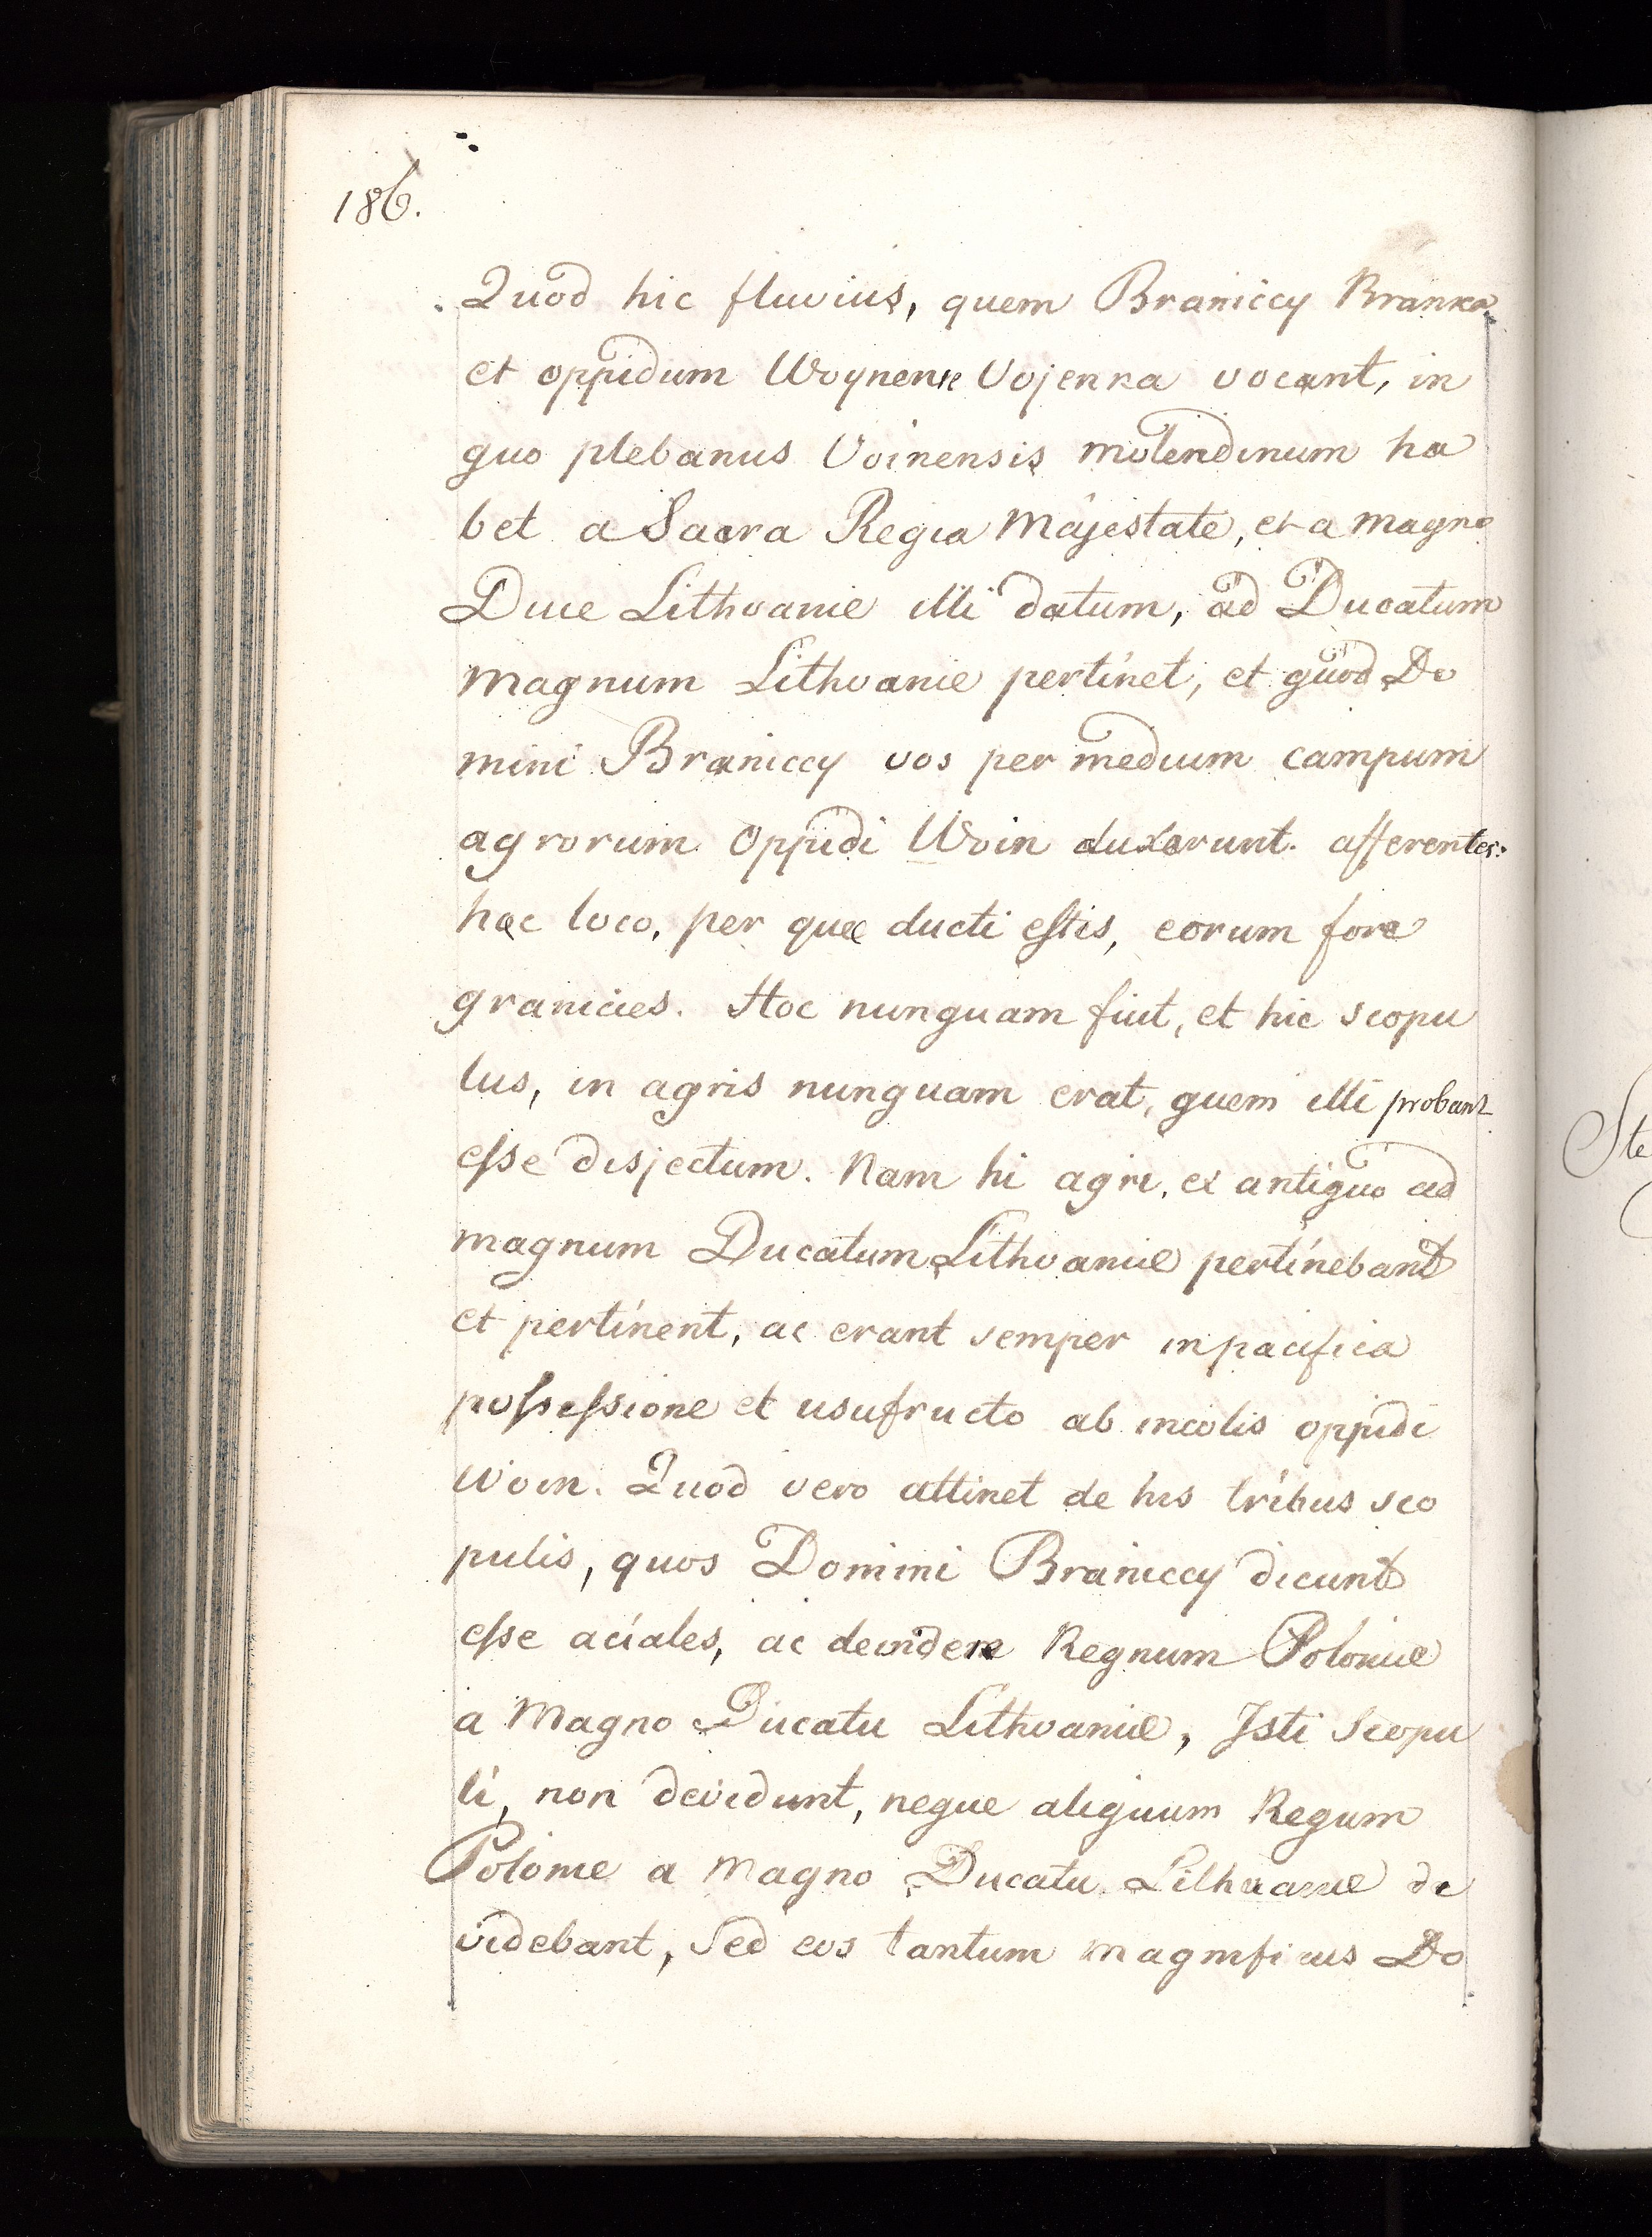 186.
Quod hic fluvius, quem Braniccy Branka
et oppidum Woynense Vojenka vocant, in
quo plebanus Voinensis molendinum ha
bet a Sacra Regia Majestate, et a magno
Duce Lithvanie illi datum, ad Ducatum
magnum Lithvanie pertinet, et quod Do
mini Braniccy vos per medium campum
agrorum oppidi Woin duxerunt. afferentes:
hec loco, per que ducti estis, eorum fore
granicies. Hoc nunquam fuit, et hic scopu
lus, in agris nunquam erat, quem illi probant
esse disjectum. Nam hi agri, ex antiquo ad
magnum Ducatum Lithvanie pertinebant
et pertinent, ac erant semper in pacifica
possessione et usufructo ab incolis oppidi
Woin. Quod vero attinet de his tribus sco
pulis, quos Domini Braniccy dicunt
esse aciales, ac devidere Regnum Polonie
a Magno Ducatu Lithvanie, Isti Scopu
li, non devidunt, neque aliquum Regum
Polonie a Magno Ducatu Lithvanie de
videbant, Sed eos tantum magnificus Do
Ste